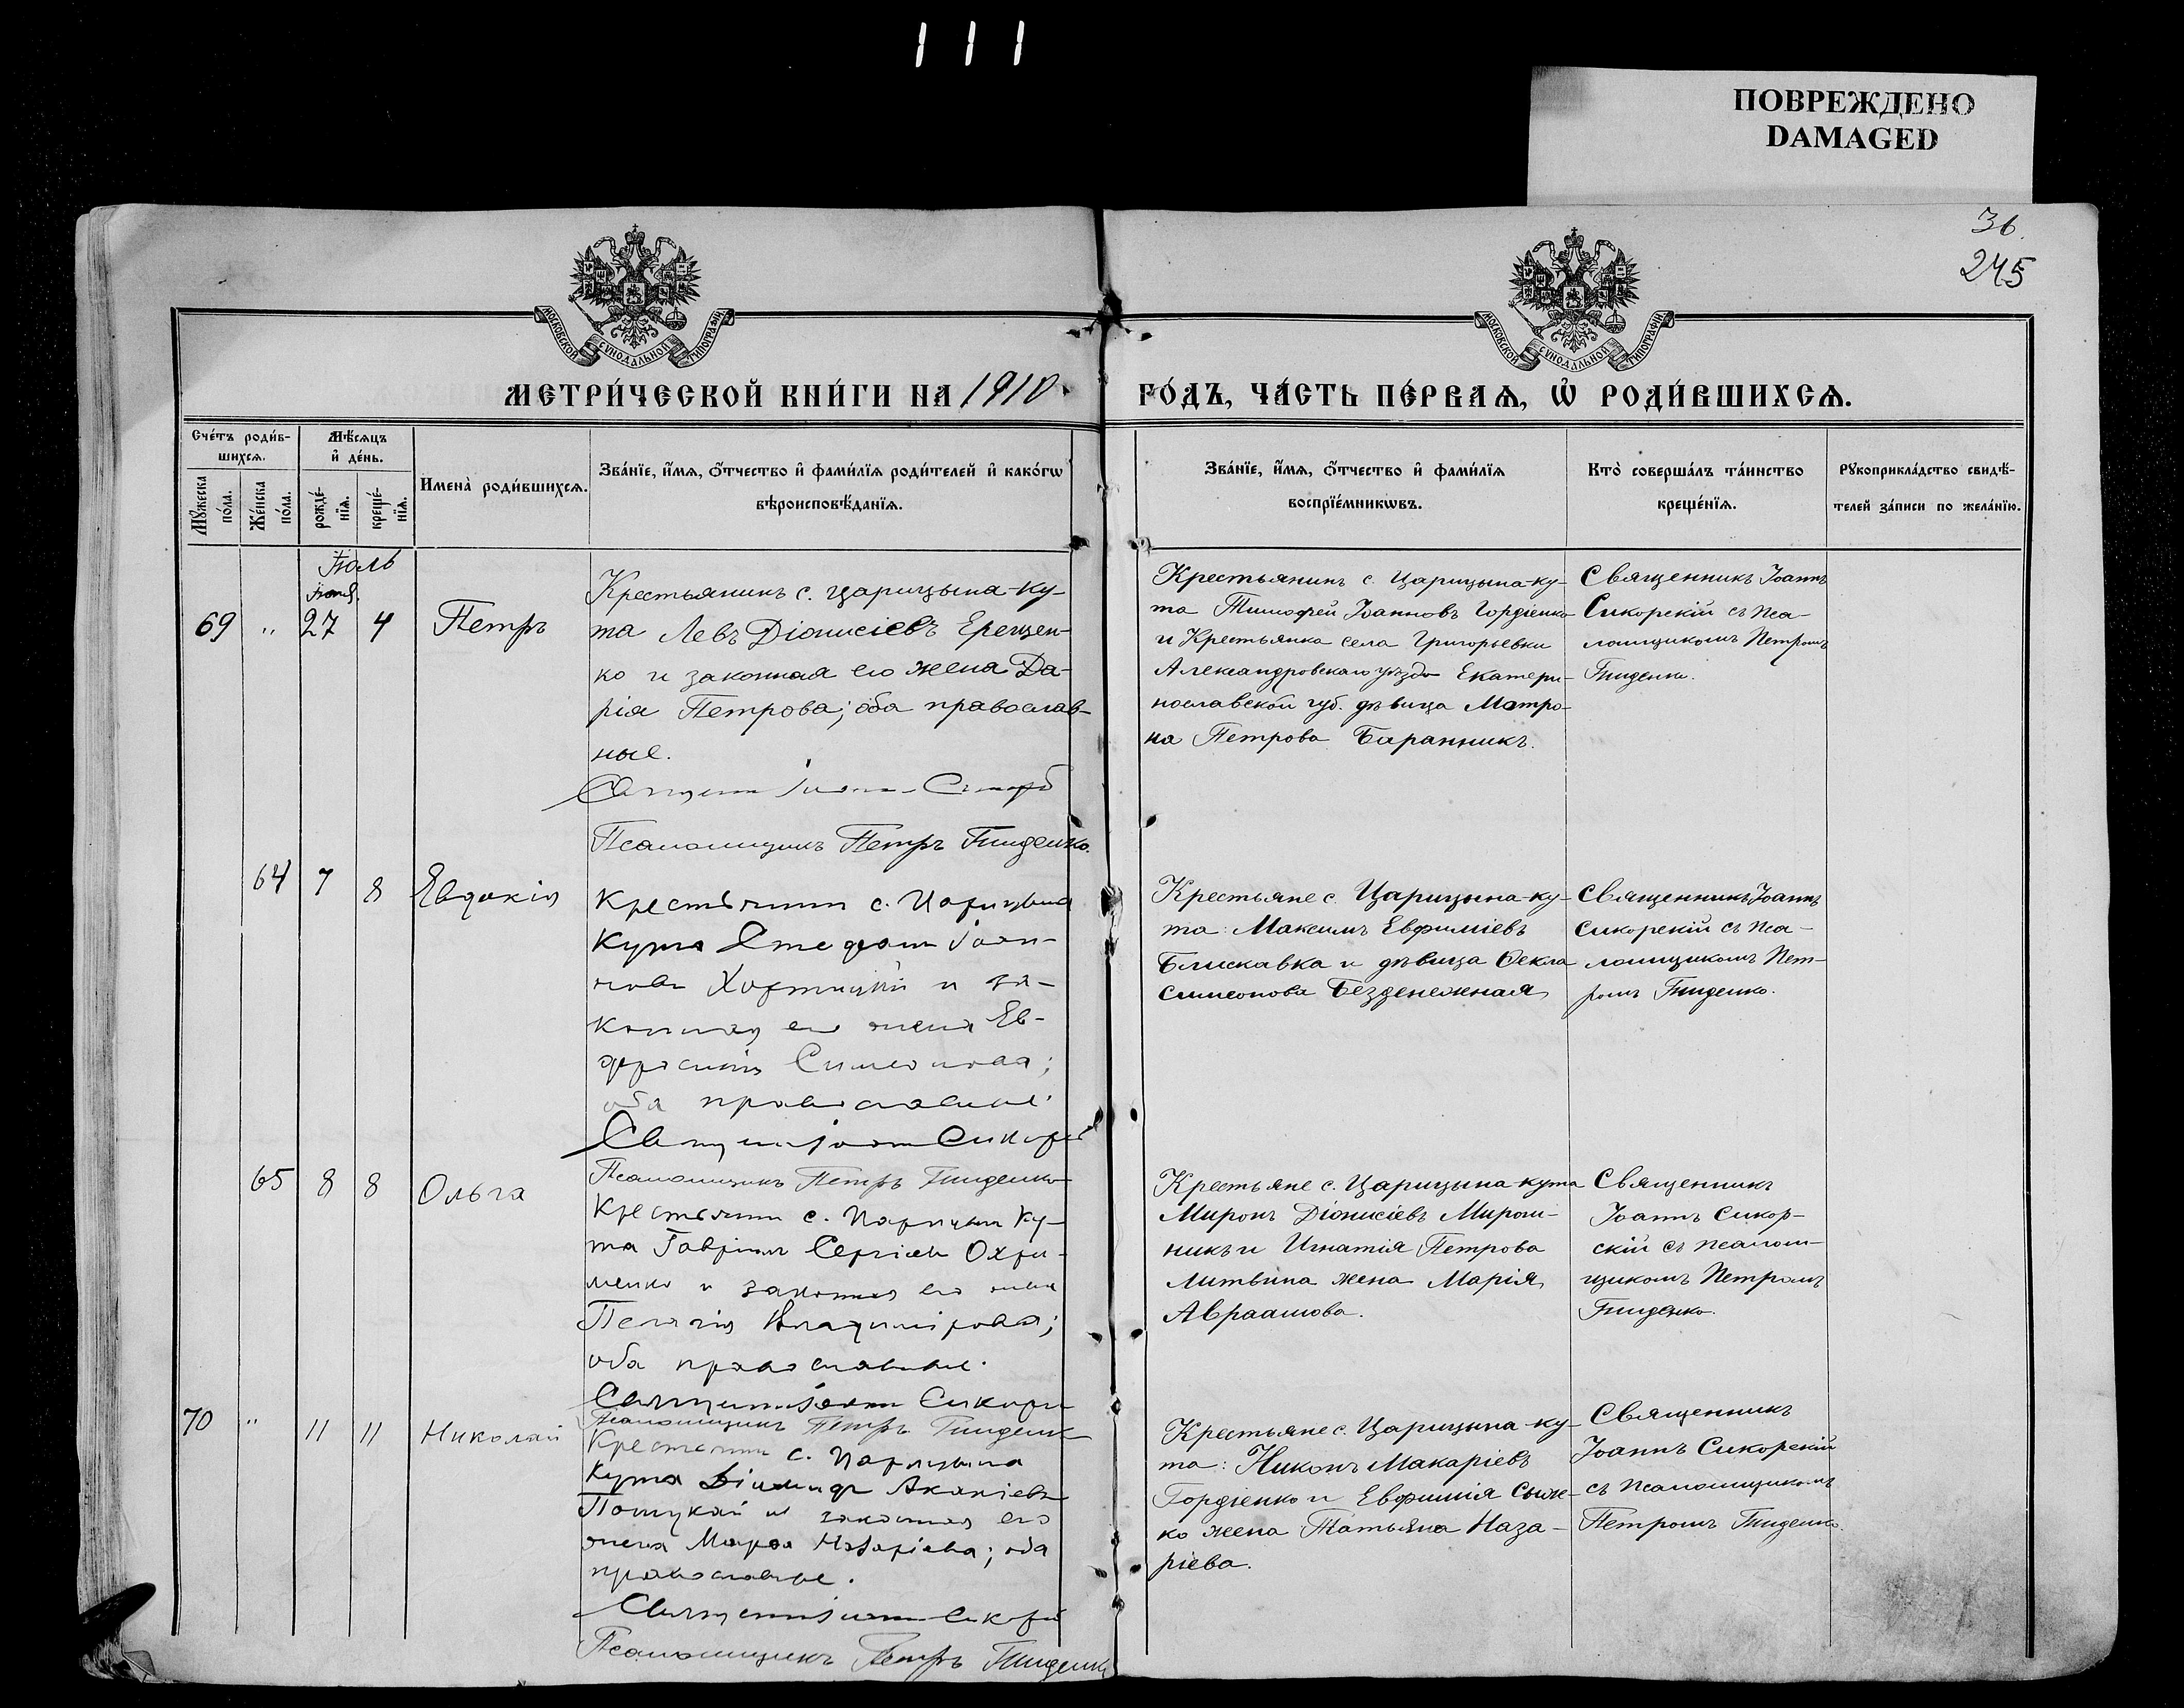 111
ПОВРЕЖДЕНО
DAMAGED
36.
245
МОСКОВСКОЙ СУНОДАЛЬНОЙ ТИПОГРАФІИ
МОСКОВСКОЙ СУНОДАЛЬНОЙ ТИПОГРАФІИ
МЕТРИ́ЧЕСКОЙ КНИ́ГИ НА 1910
ГО́ДЪ, ЧА́СТЬ ПЕ́РВАѦ, Ѡ҆ РОДИ́ВШИХСѦ.
Сче́тъ роди́в-
шихсѧ.
Мѣ́сѧцъ
и҆ де́нь.
Мꙋ́жеска
по́ла.
Же́нска
по́ла.
рожде́-
нїѧ.
креще́-
нїѧ.
Имена̀ роди́вшихсѧ.
Зва́нїе, и҆́мѧ, ѻ҆́тчество и҆ фами́лїѧ роди́телей и҆ како́гѡ
вѣроисповѣ́данїѧ.
Зва́нїе, и҆́мѧ, ѻ҆́тчество и҆ фами́лїѧ
воспрїе́мникѡвъ.
Кто̀ соверша́лъ та́инство
креще́нїѧ.
Рꙋкоприкла́дство свидѣ́-
телей за́писи по жела́нїю.
Іюль
69 " 27 4 Петръ
Крестьянинъ с. Царицына-Ку-
та Левъ Діонисіевъ Ерещен-
ко и законная его жена Да-
рія Петрова; оба православ-
ные.
Псаломщикъ Петръ Гниденко.
Крестьянинъ с. Царицына-ку-
та Тимофей Іоанновъ Гордіенко
и Крестьянка села Григорьевки
Александровскаго уѣзда Екатери-
нославской губ. дѣвица Матро-
на Петрова Баранникъ.
Священникъ Іоаннъ
Сикорскій съ пса-
ломщикомъ Петромъ
Гниденко.
64 7 8 Евдокія
Крестьянинъ с. Царицына
Кута Стефанъ Іоан-
новъ Хортицкій и за-
конная его жена Ев-
фросинія Симеонова;
оба православные.
Священникъ Іоаннъ Сикорскій
Псаломщикъ Петръ Гниденко
Крестьяне с. Царицына-ку-
та: Максимъ Евфиміевъ
Блискавка и дѣвица Ѳекла
Симеонова Безденежная
Священникъ Іоаннъ
Сикорскій съ пса-
ломщикомъ Пет-
ромъ Гниденко.
65 8 8 Ольга
Крестьянинъ с. Царицына Ку-
та Гавріилъ Сергіевъ Охри-
менко и законная его жена
Пелагія Владимірова;
оба православные.
Священникъ Іоаннъ Сикорскій
Псаломщикъ Петръ Гниденко
Крестьяне с. Царицына-кута
Миронъ Діонисіевъ Мирош-
никъ и Игнатія Петрова
Литвина жена Марія
Авраамова.
Священникъ
Іоаннъ Сикор-
скій съ псалом-
щикомъ Петромъ
Гниденко.
70 " 11 11 Николай
Крестьянинъ с. Царицына
Кута Акакіевъ
и законная его
жена Марѳа Назаріева; оба
православные.
Священникъ Іоаннъ Сикорскій
Псаломщикъ Петръ Гниденко
Крестьяне с. Царицына-ку-
та: Никонъ Макаріевъ
Гордіенко и Евфимія Сыж-
ко жена Татьяна Наза-
ріева.
Священникъ
Іоаннъ Сикорскій
съ псаломщикомъ
Петромъ Гниденко.